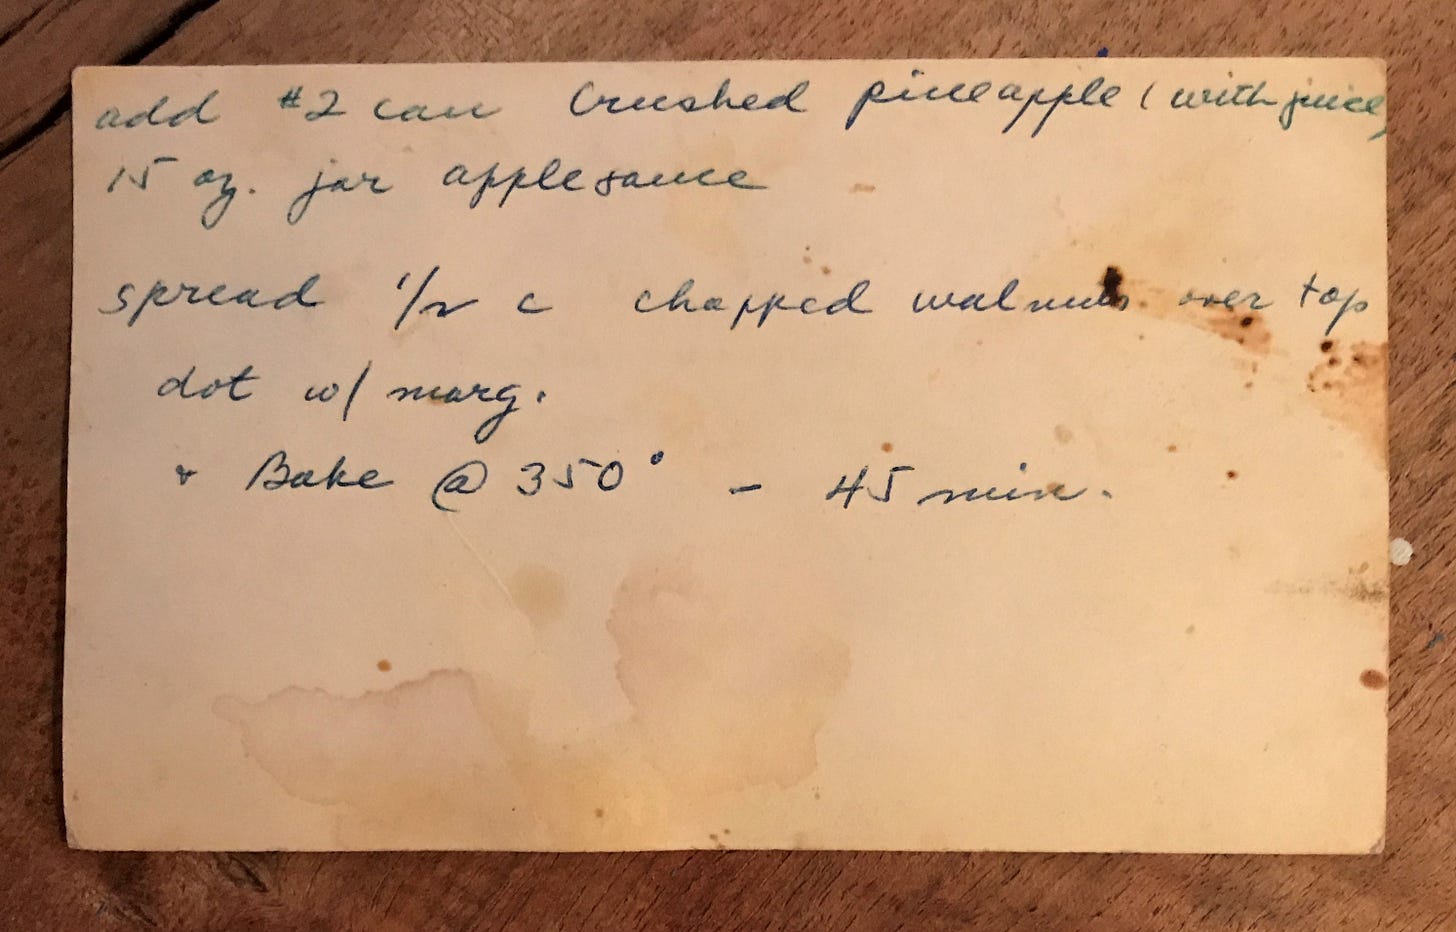 add #2 can Crushed pineapple (with juice)
15 oz. jar applesauce
spread 1/2 c chopped walnuts over top
dot w/ marg.
+ Bake @ 350° - 45 min.